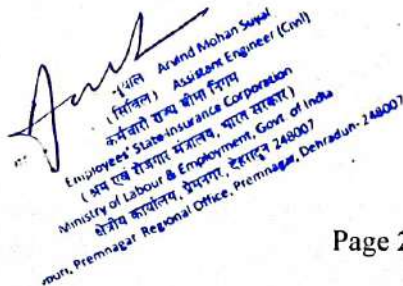 Arvind Mohan Suyal
(सिविल) Assistant Engineer (Civil)
कर्मचारी राज्य बीमा निगम
Employees' State Insurance Corporation
(श्रम एवं रोजगार मंत्रालय, भारत सरकार)
Ministry of Labour & Employment, Govt of India
क्षेत्रीय कार्यालय, प्रेमनगर, देहरादून 248007
Premnagar Regional Office, Premnagar, Dehradun- 248007
Page 2